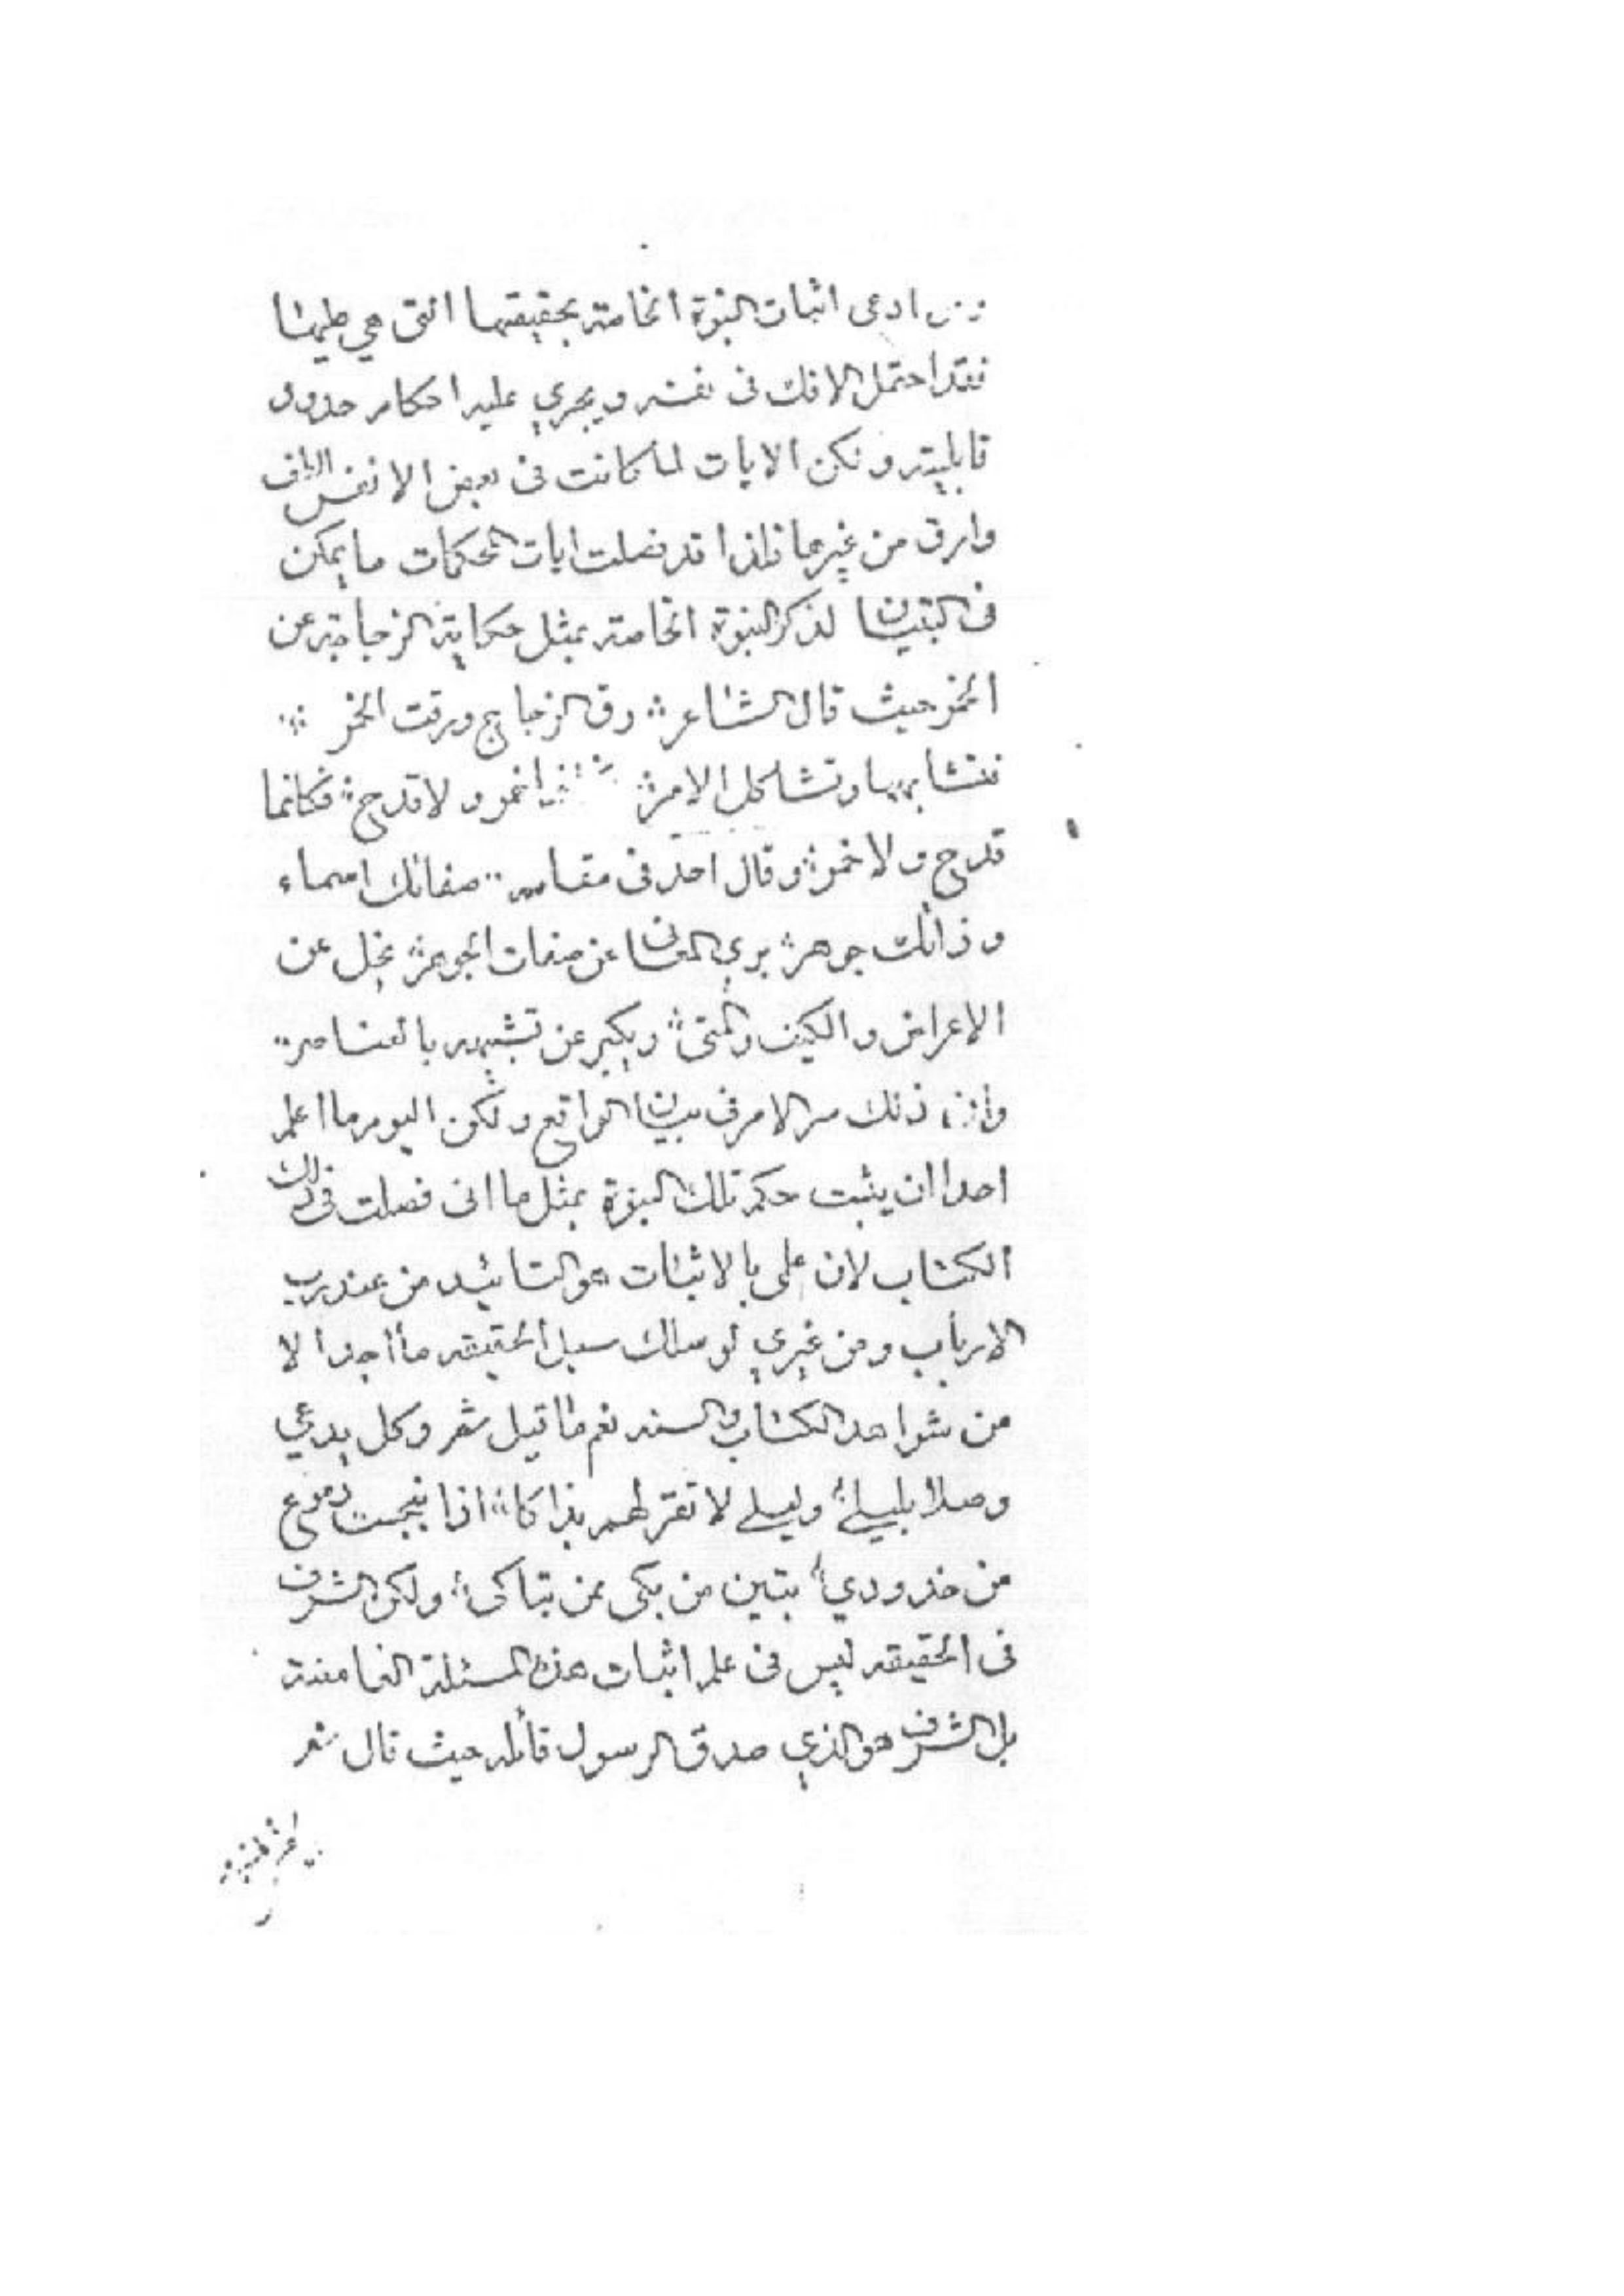 ادعى اثبات النبوة الخاصة بحقيقتها التى هي عليها
فقد احتمل الافك فى نفسه ويجري عليه احكام حدود
قابليته ولكن الايات لما كانت فى بعض الانفس الطف
وارق من غيرها فلذا قد فصلت ايات المحكمات ما يمكن
فى التبيان لذكر النبوة الخاصة بمثل حكاية الزجاجة عن
الخمر حيث قال الشاعر ؞ رق الزجاج ورقت الخمر ؞
فتشابها وتشاكل الامر ؞ خمر ولا قدح ؞ فكانما
قدح ولا خمر ؞ وقال احد فى مقامه ؞ صفاتك اسماء
وذاتك جوهر ؞ بري المعانى عن صفات الجوهر ؞ يجل عن
الاعراض والكيف والمتى ؞ ويكبر عن تشبيهه بالعناصر ؞
وان ذلك سر الامر فى بيان الواقع ولكن اليوم ما اعلم
احدا ان يثبت حكم تلك النبوة بمثل ما انى فصلت فى ذلك
الكتاب لان على بالاثبات هو التائيد من عند رب
الارباب ومن غيري لو سلك سبل الحقيقه ما اجد الا
من شواهد الكتاب والسنه نعم ما قيل شعر وكل يدعي
وصلا بليلى ؞ وليلى لا تقر لهم بذاكا ؞ اذا نبجست دموع
من خدودي ؞ تبين من بكى ممن تباكى ؞ ولكن الشرف
فى الحقيقه ليس فى علم اثبات هذه المسئلة الغامضة
بل الشرف هو الذي صدق الرسول قائله حيث قال شعر